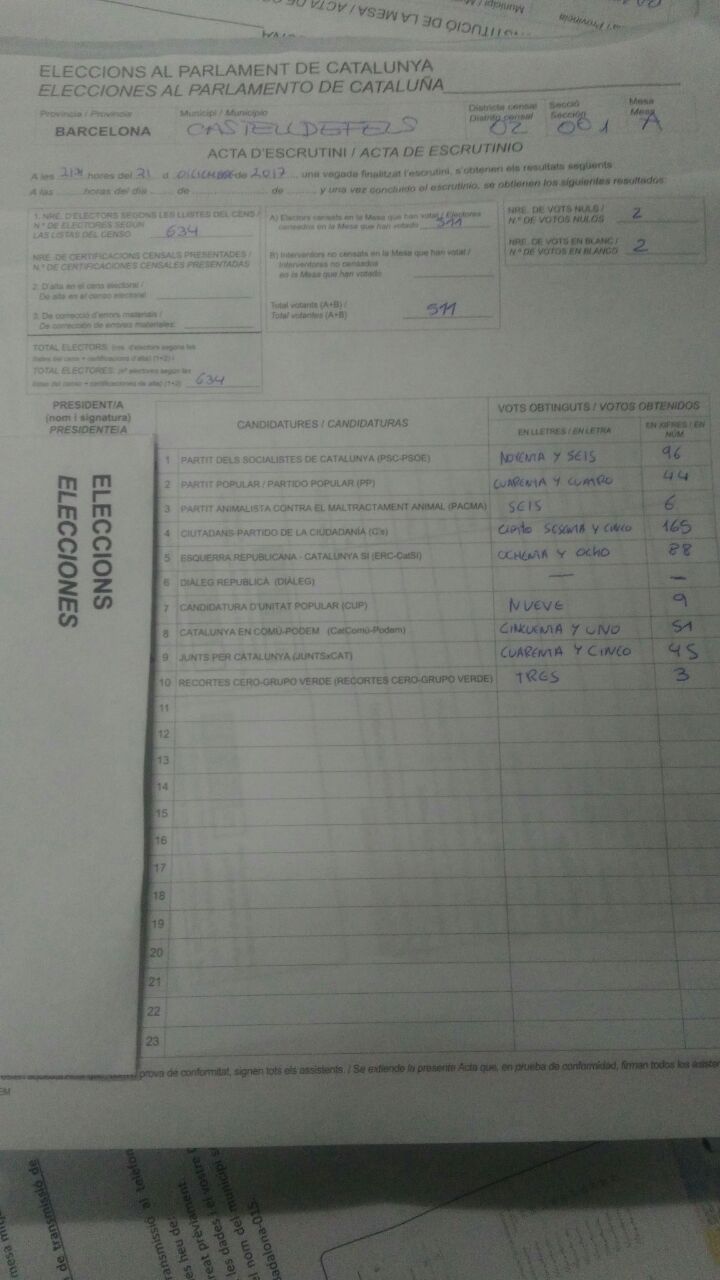 ELECCIONS AL PARLAMENT DE CATALUNYA
ELECCIONES AL PARLAMENTO DE CATALUÑA
Província / Provincia
BARCELONA
Municipi / Municipio
CASTELLDEFELS
Districte censal
Distrito censal
02
Secció
Sección
001
Mesa
Mesa
A
ACTA D'ESCRUTINI / ACTA DE ESCRUTINIO
A les 21 hores del 21 d DICIEMBRE de 2017, una vegada finalitzat l'escrutini, s'obtenen els resultats següents
A las ........ horas del día ...... de ............ de ........ y una vez concluido el escrutinio, se obtienen los siguientes resultados:
1. NRE. D'ELECTORS SEGONS LES LLISTES DEL CENS /
N.º DE ELECTORES SEGÚN
LAS LISTAS DEL CENSO 634
NRE. DE CERTIFICACIONS CENSALS PRESENTADES /
N.º DE CERTIFICACIONES CENSALES PRESENTADAS
2. D'alta en el cens electoral /
De alta en el censo electoral
3. De correcció d'errors materials /
De corrección de errores materiales:
TOTAL ELECTORS: (nre. d'electors segons les
llistes del cens + certificacions d'alta) (1+2) /
TOTAL ELECTORES: (nº electores según las
listas del censo + certificaciones de alta) (1+2) 634
A) Electors censats en la Mesa que han votat / Electores
censados en la Mesa que han votado 511
B) Interventors no censats en la Mesa que han votat /
Interventores no censados
en la Mesa que han votado
Total votants (A+B) /
Total votantes (A+B) 511
NRE. DE VOTS NULS /
N.º DE VOTOS NULOS 2
NRE. DE VOTS EN BLANC /
N.º DE VOTOS EN BLANCO 2
PRESIDENT/A
(nom i signatura)
PRESIDENTE/A
CANDIDATURES / CANDIDATURAS
VOTS OBTINGUTS / VOTOS OBTENIDOS
EN LLETRES / EN LETRA
EN XIFRES / EN NÚM.
1 PARTIT DELS SOCIALISTES DE CATALUNYA (PSC-PSOE) NOVENTA Y SEIS 96
2 PARTIT POPULAR / PARTIDO POPULAR (PP) CUARENTA Y CUATRO 44
3 PARTIT ANIMALISTA CONTRA EL MALTRACTAMENT ANIMAL (PACMA) SEIS 6
4 CIUTADANS-PARTIDO DE LA CIUDADANÍA (C's) CIENTO SESENTA Y CINCO 165
5 ESQUERRA REPUBLICANA - CATALUNYA SÍ (ERC-CatSí) OCHENTA Y OCHO 88
6 DIÀLEG REPUBLICÀ (DIÀLEG) — —
7 CANDIDATURA D'UNITAT POPULAR (CUP) NUEVE 9
8 CATALUNYA EN COMÚ-PODEM (CatComú-Podem) CINCUENTA Y UNO 51
9 JUNTS PER CATALUNYA (JUNTSxCAT) CUARENTA Y CINCO 45
10 RECORTES CERO-GRUPO VERDE (RECORTES CERO-GRUPO VERDE) TRES 3
11
12
13
14
15
16
17
18
19
20
21
22
23
ELECCIONS
ELECCIONES
prova de conformitat, signen tots els assistents. / Se extiende la presente Acta que, en prueba de conformidad, firman todos los